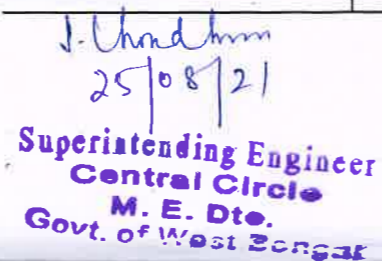 J. Chondhum
25/08/21
Superintending Engineer
Central Circle
M. E. Dte.
Govt. of West Bengal